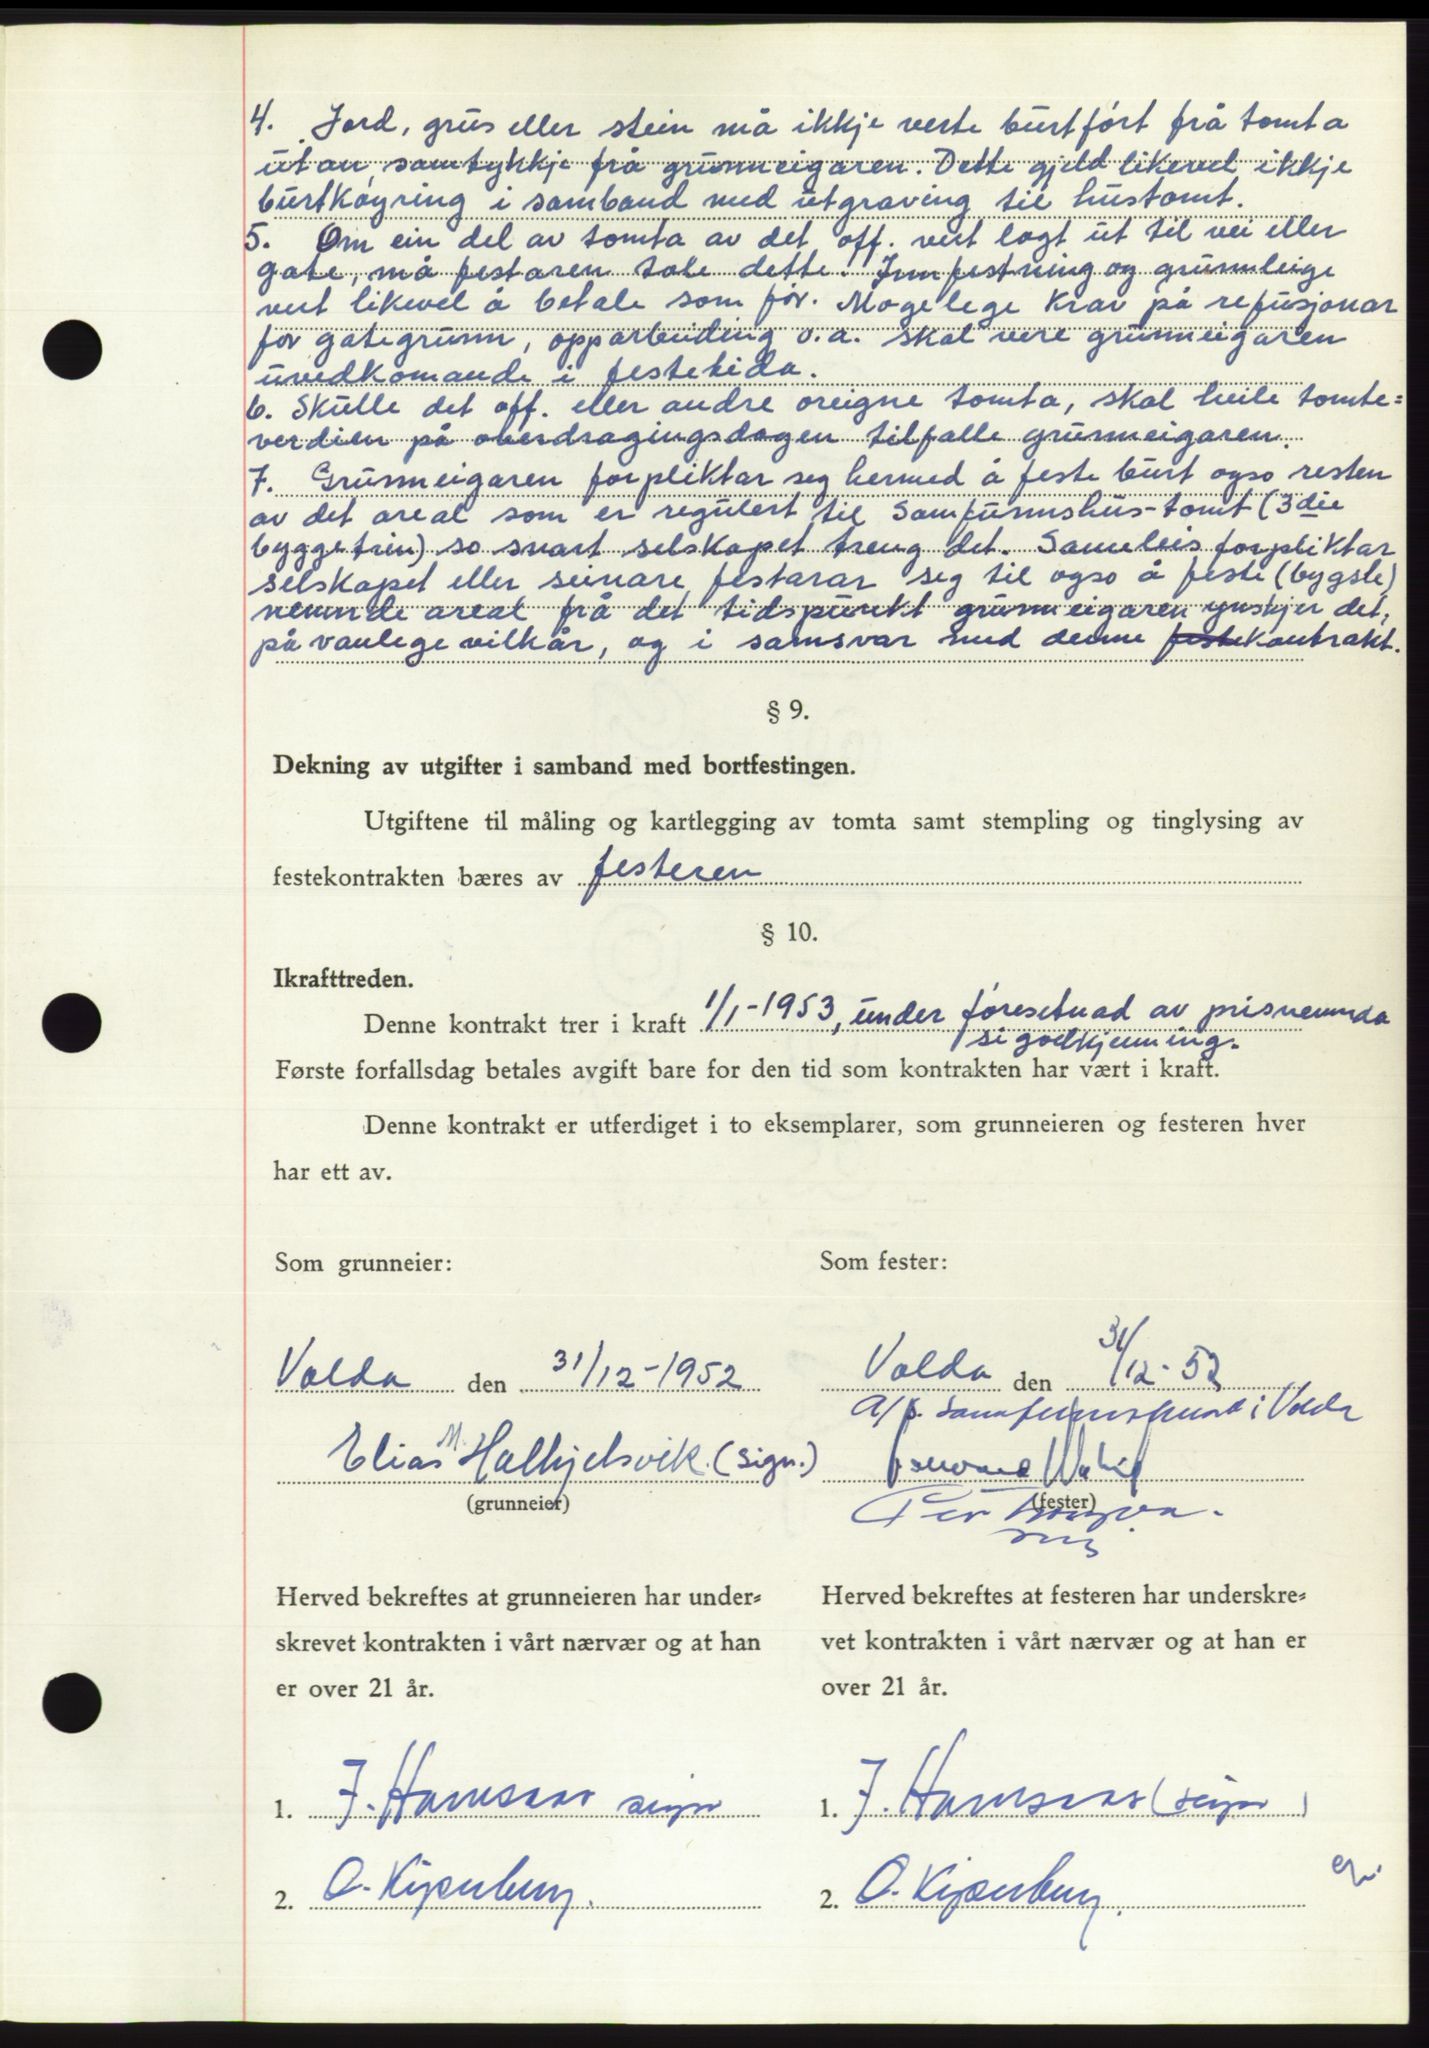 4. Jord, grus eller stein må ikkje verte burtført frå tomta
utan samtykkje frå grunneigaren. Dette gjeld likevel ikkje
burtkøyring i samband med utgraving til hustomt.
5. Om ein del av tomta av det off. vert lagt ut til vei eller
gate, må festaren tole dette. Innfestning og grunnleige
vert likevel å betale som før. Mogelege krav på refusjonar
for gategrunn, opparbeiding o.a. skal vere grunneigaren
uvedkomande i festetida.
6. Skulle det off. eller andre oreigne tomta, skal heile tomte=
verdien på overdragingsdagen tilfalle grunneigaren.
7. Grunneigaren forpliktar seg hermed å feste burt ogso resten
av det areal som er regulert til Samfunnshus-tomt (3die
byggetrin) so snart selskapet treng det. Sameleis forpliktar
selskapet eller seinare festarar seg til ogso å feste (bygsle)
nemnde areal frå det tidspunkt grunneigaren ynskjer det,
på vanlege vilkår, og i samsvar med denne festekontrakt.
§ 9.
Dekning av utgifter i samband med bortfestingen.
Utgiftene til måling og kartlegging av tomta samt stempling og tinglysing av
festekontrakten bæres av festeren
§ 10.
Ikrafttreden.
Denne kontrakt trer i kraft 1/1-1953, under føresetnad av prisnemnda
si godkjenning.
Første forfallsdag betales avgift bare for den tid som kontrakten har vært i kraft.
Denne kontrakt er utferdiget i to eksemplarer, som grunneieren og festeren hver
har ett av.
Som grunneier: Som fester:
Volda den 31/12-1952 Volda den 31/12-52
A/L Samfunnshuset i Volda
Elias M. Halkjelsvik (sign.)
(grunneier) (fester)
Per
Herved bekreftes at grunneieren har under=
skrevet kontrakten i vårt nærvær og at han
er over 21 år.
Herved bekreftes at festeren har underskre=
vet kontrakten i vårt nærvær og at han er
over 21 år.
1. J. sign 1. J. (sign)
2. O. 2. O.